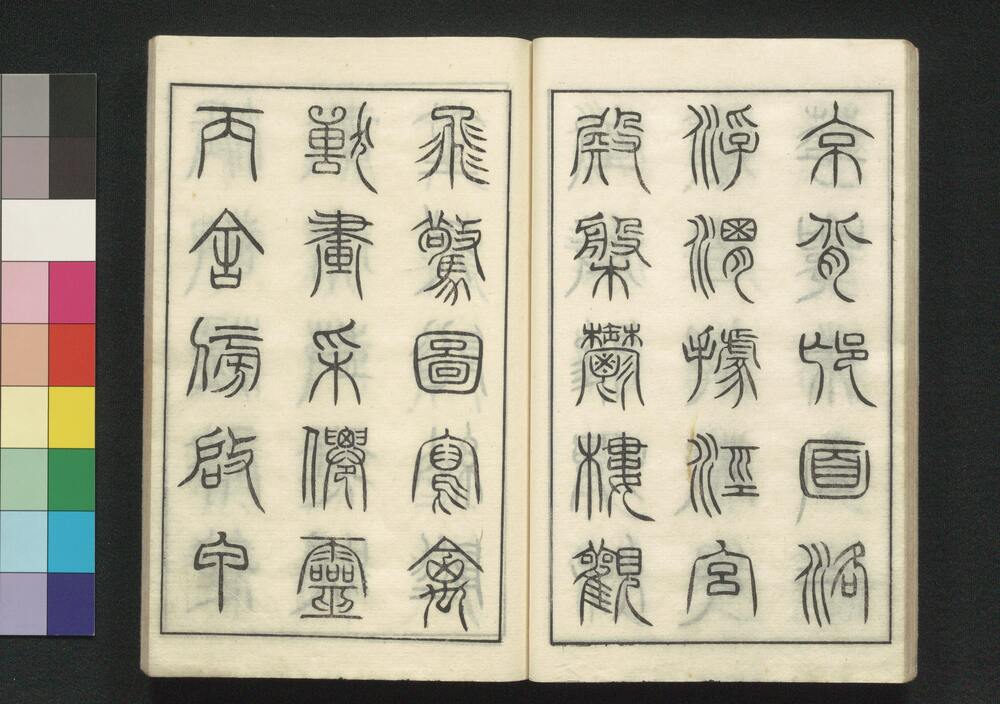 京背邙面洛
浮渭據涇宮
殿槃鬱樓觀
飛驚圖寫禽
獸畫采僊靈
丙舍傍啟甲